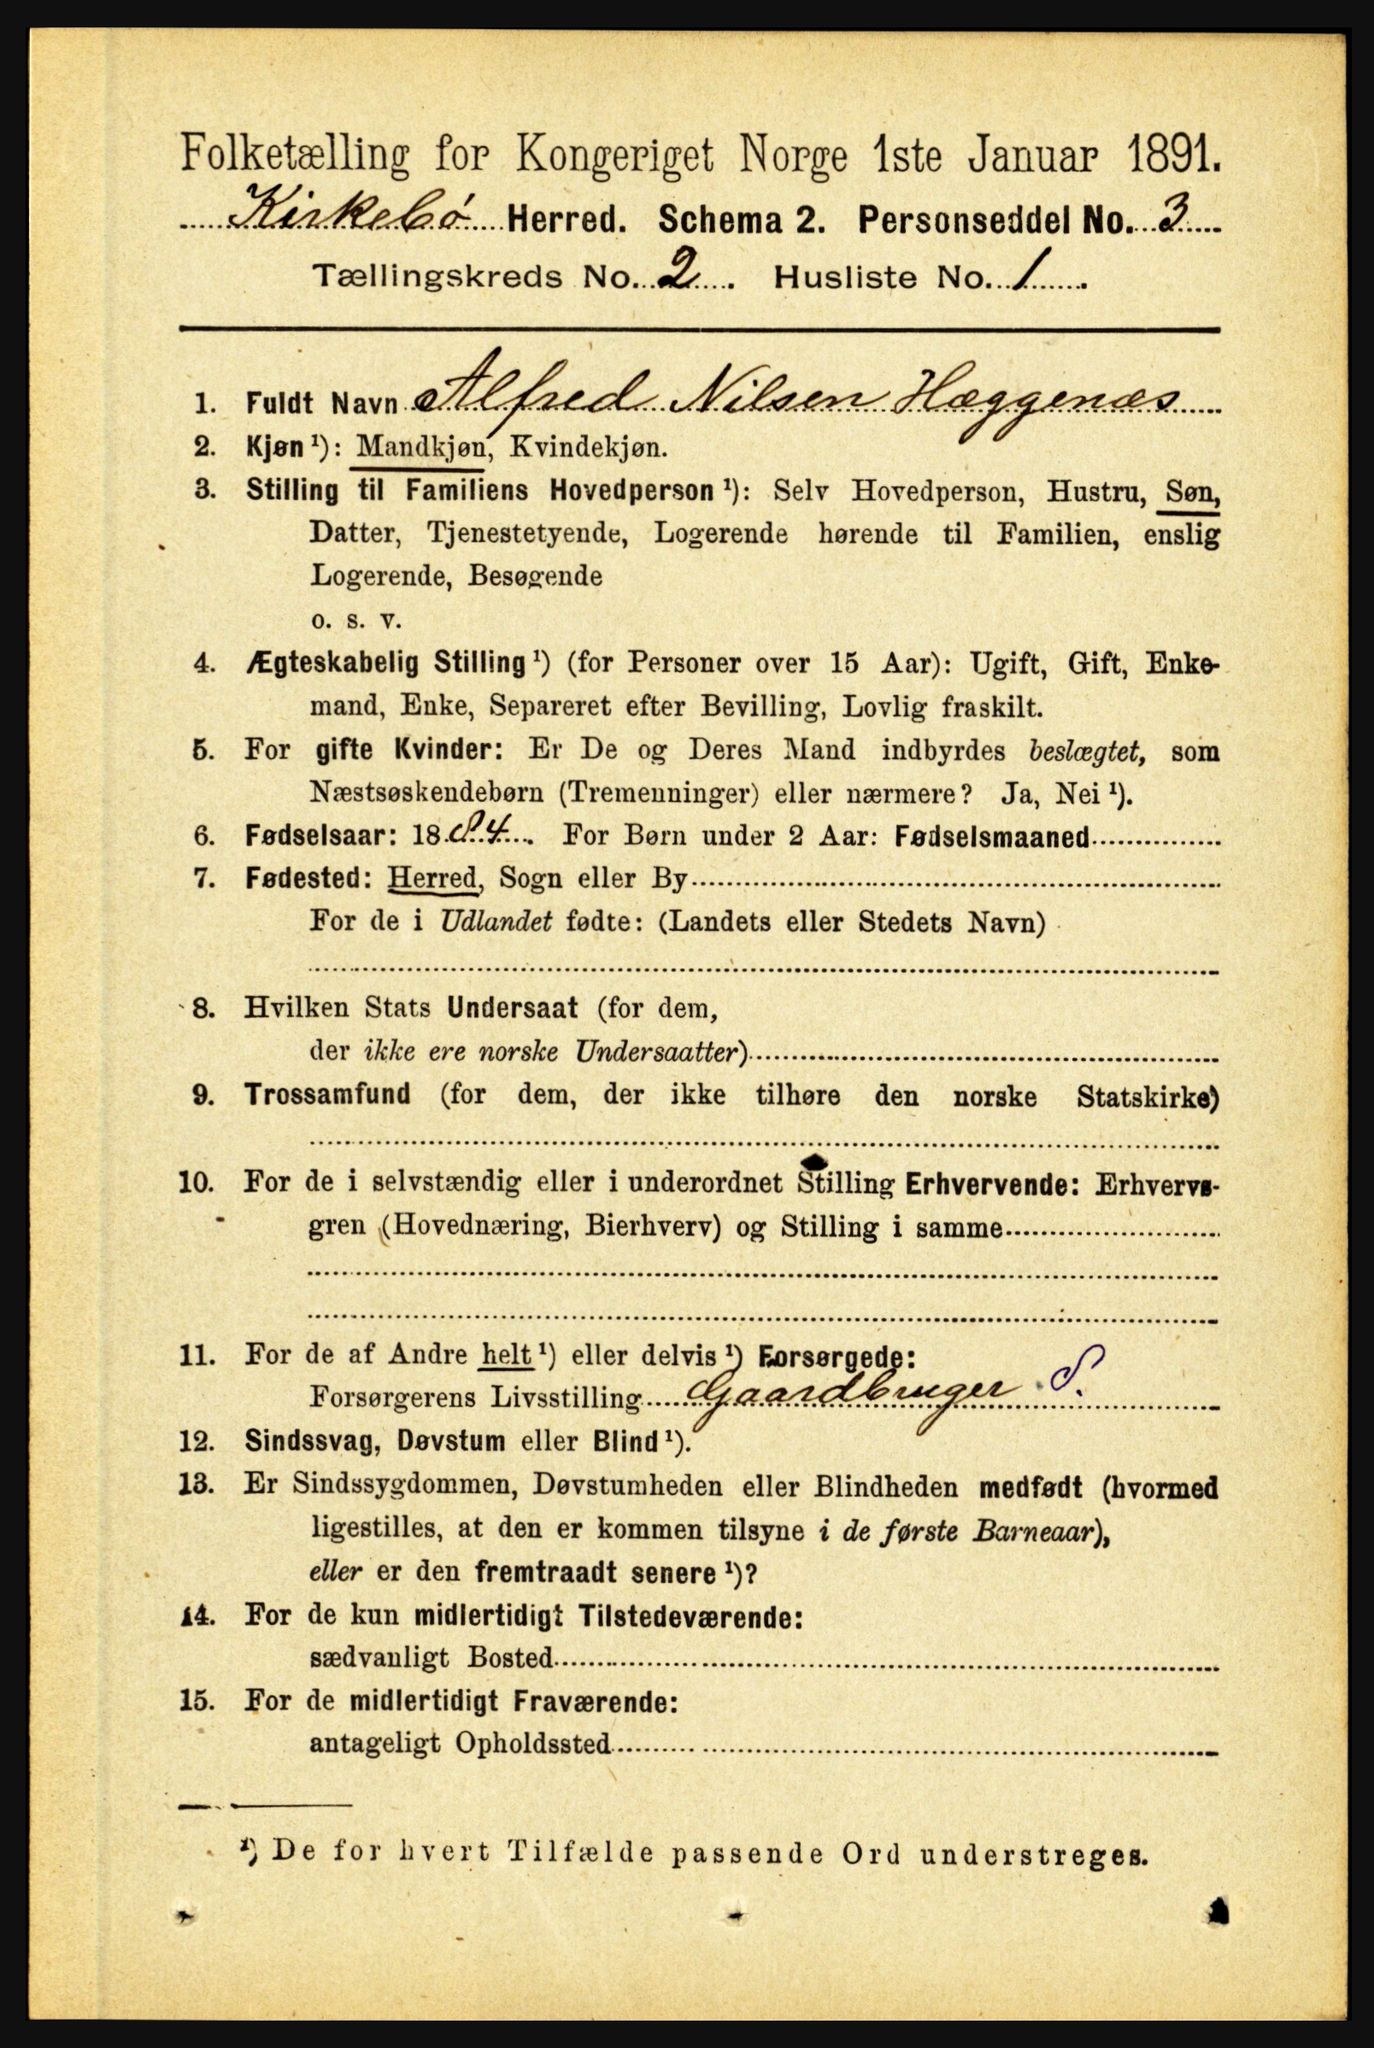 Folketælling for Kongeriget Norge 1ste Januar 1891.
Kirkebø Herred. Schema 2. Personseddel No. 3
Tællingskreds No. 2. Husliste No. 1.
1. Fuldt Navn Alfred Nilsen Hæggenæs
2. Kjøn ¹): Mandkjøn, Kvindekjøn.
3. Stilling til Familiens Hovedperson ¹): Selv Hovedperson, Hustru, Søn,
Datter, Tjenestetyende, Logerende hørende til Familien, enslig
Logerende, Besøgende
o. s. v.
4. Ægteskabelig Stilling ¹) (for Personer over 15 Aar): Ugift, Gift, Enke-
mand, Enke, Separeret efter Bevilling, Lovlig fraskilt.
5. For gifte Kvinder: Er De og Deres Mand indbyrdes beslægtet, som
Næstsøskendebørn (Tremenninger) eller nærmere? Ja, Nei ¹).
6. Fødselsaar: 1884. For Børn under 2 Aar: Fødselsmaaned
7. Fødested: Herred, Sogn eller By
For de i Udlandet fødte: (Landets eller Stedets Navn)
8. Hvilken Stats Undersaat (for dem,
der ikke ere norske Undersaatter)
9. Trossamfund (for dem, der ikke tilhøre den norske Statskirke)
10. For de i selvstændig eller i underordnet Stilling Erhvervende: Erhvervs-
gren (Hovednæring, Bierhverv) og Stilling i samme
11. For de af Andre helt ¹) eller delvis ¹) Forsørgede:
Forsørgerens Livsstilling Gaardbruger S.
12. Sindssvag, Døvstum eller Blind ¹).
13. Er Sindssygdommen, Døvstumheden eller Blindheden medfødt (hvormed
ligestilles, at den er kommen tilsyne i de første Barneaar),
eller er den fremtraadt senere ¹)?
14. For de kun midlertidigt Tilstedeværende:
sædvanligt Bosted
15. For de midlertidigt Fraværende:
antageligt Opholdssted
¹) De for hvert Tilfælde passende Ord understreges.